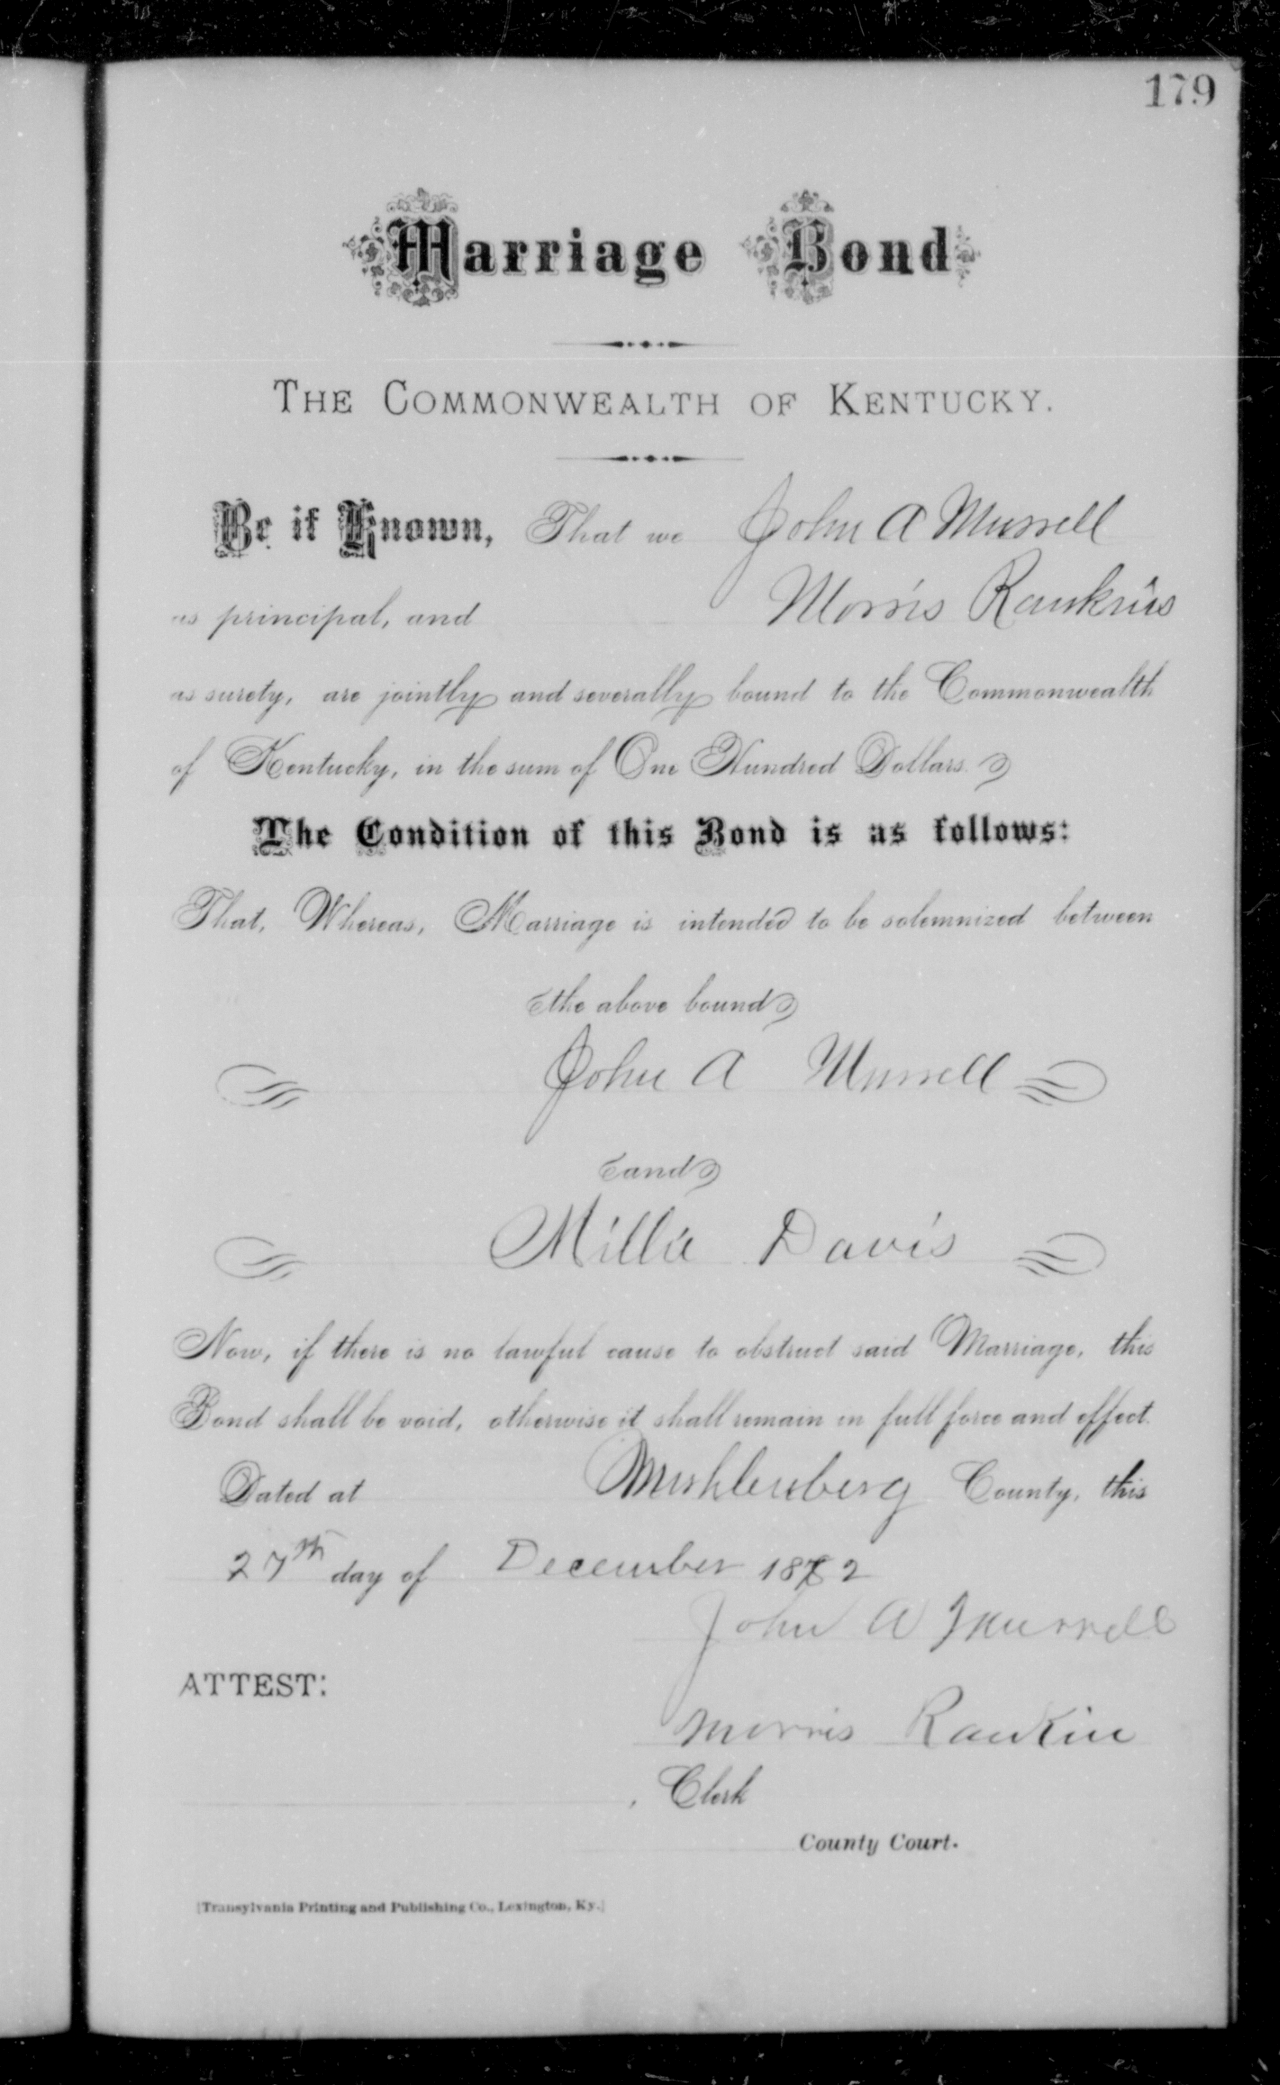 179
Marriage Bond
THE COMMONWEALTH OF KENTUCKY.
Be it Known, That we John A Murrell
as principal, and Morris Rankins
as surety, are jointly and severally bound to the Commonwealth
of Kentucky, in the sum of One Hundred Dollars.
The Condition of this Bond is as follows:
That, Whereas, Marriage is intended to be solemnized between
the above bound
John A Murrell
and
Millie Davis
Now, if there is no lawful cause to obstruct said Marriage, this
Bond shall be void, otherwise it shall remain in full force and effect.
Dated at Muhlenberg County, this
27th day of December 1882
John A Murrell
ATTEST:
Morris Rankin
, Clerk
County Court.
[Transylvania Printing and Publishing Co., Lexington, Ky.]